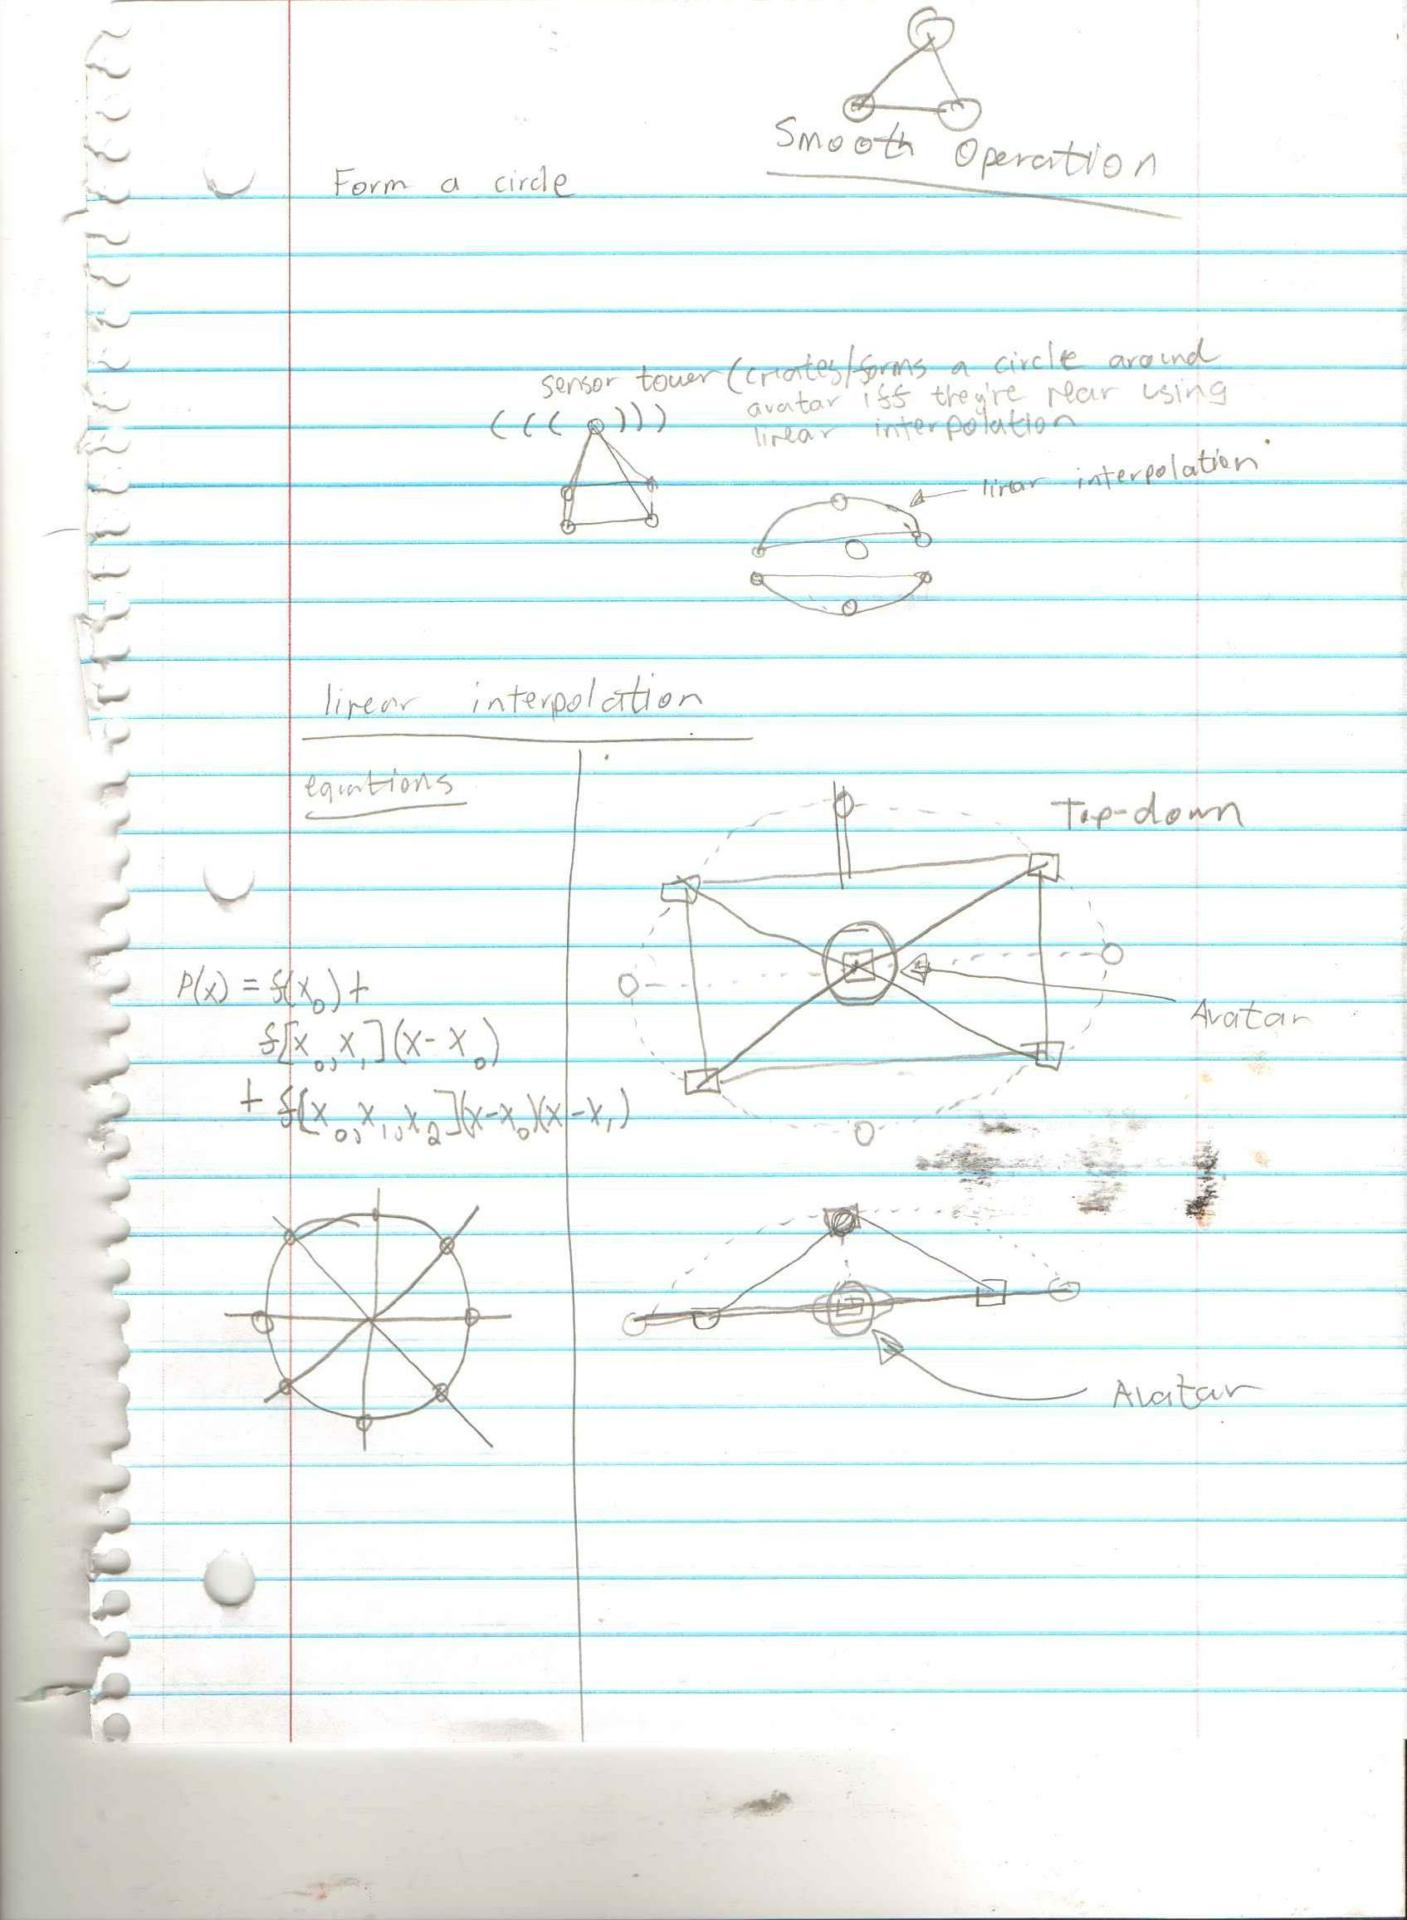 Smooth Operation
Form a circle
sensor tower (creates/forms a circle around
avatar iff they're near using
linear interpolation
linear interpolation
linear interpolation
equations
Top-down
P(x) = f(x₀) +
f[x₀, x₁](x - x₀)
+ f[x₀, x₁, x₂](x-x₀)(x-x₁)
Avatar
Avatar